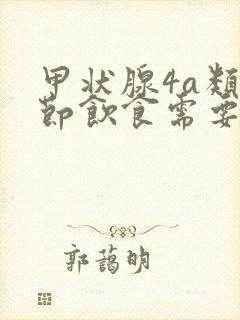 甲状腺4a類
節飲食需要
郭藹明